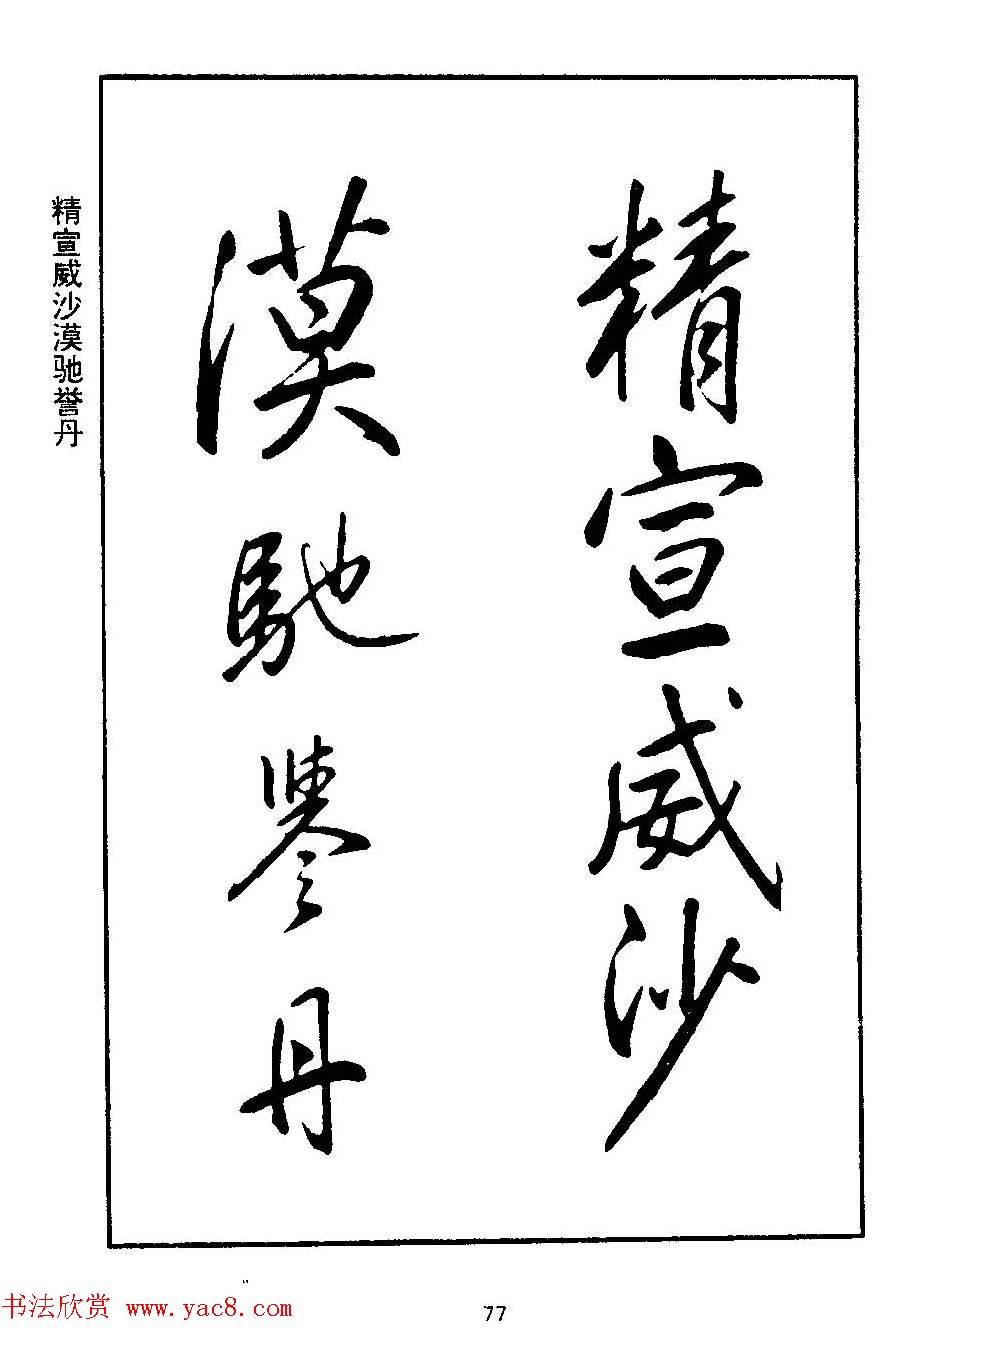 精宣威沙
漠馳誉丹
精宣威沙漠驰誉丹
书法欣赏 www.yac8.com
77